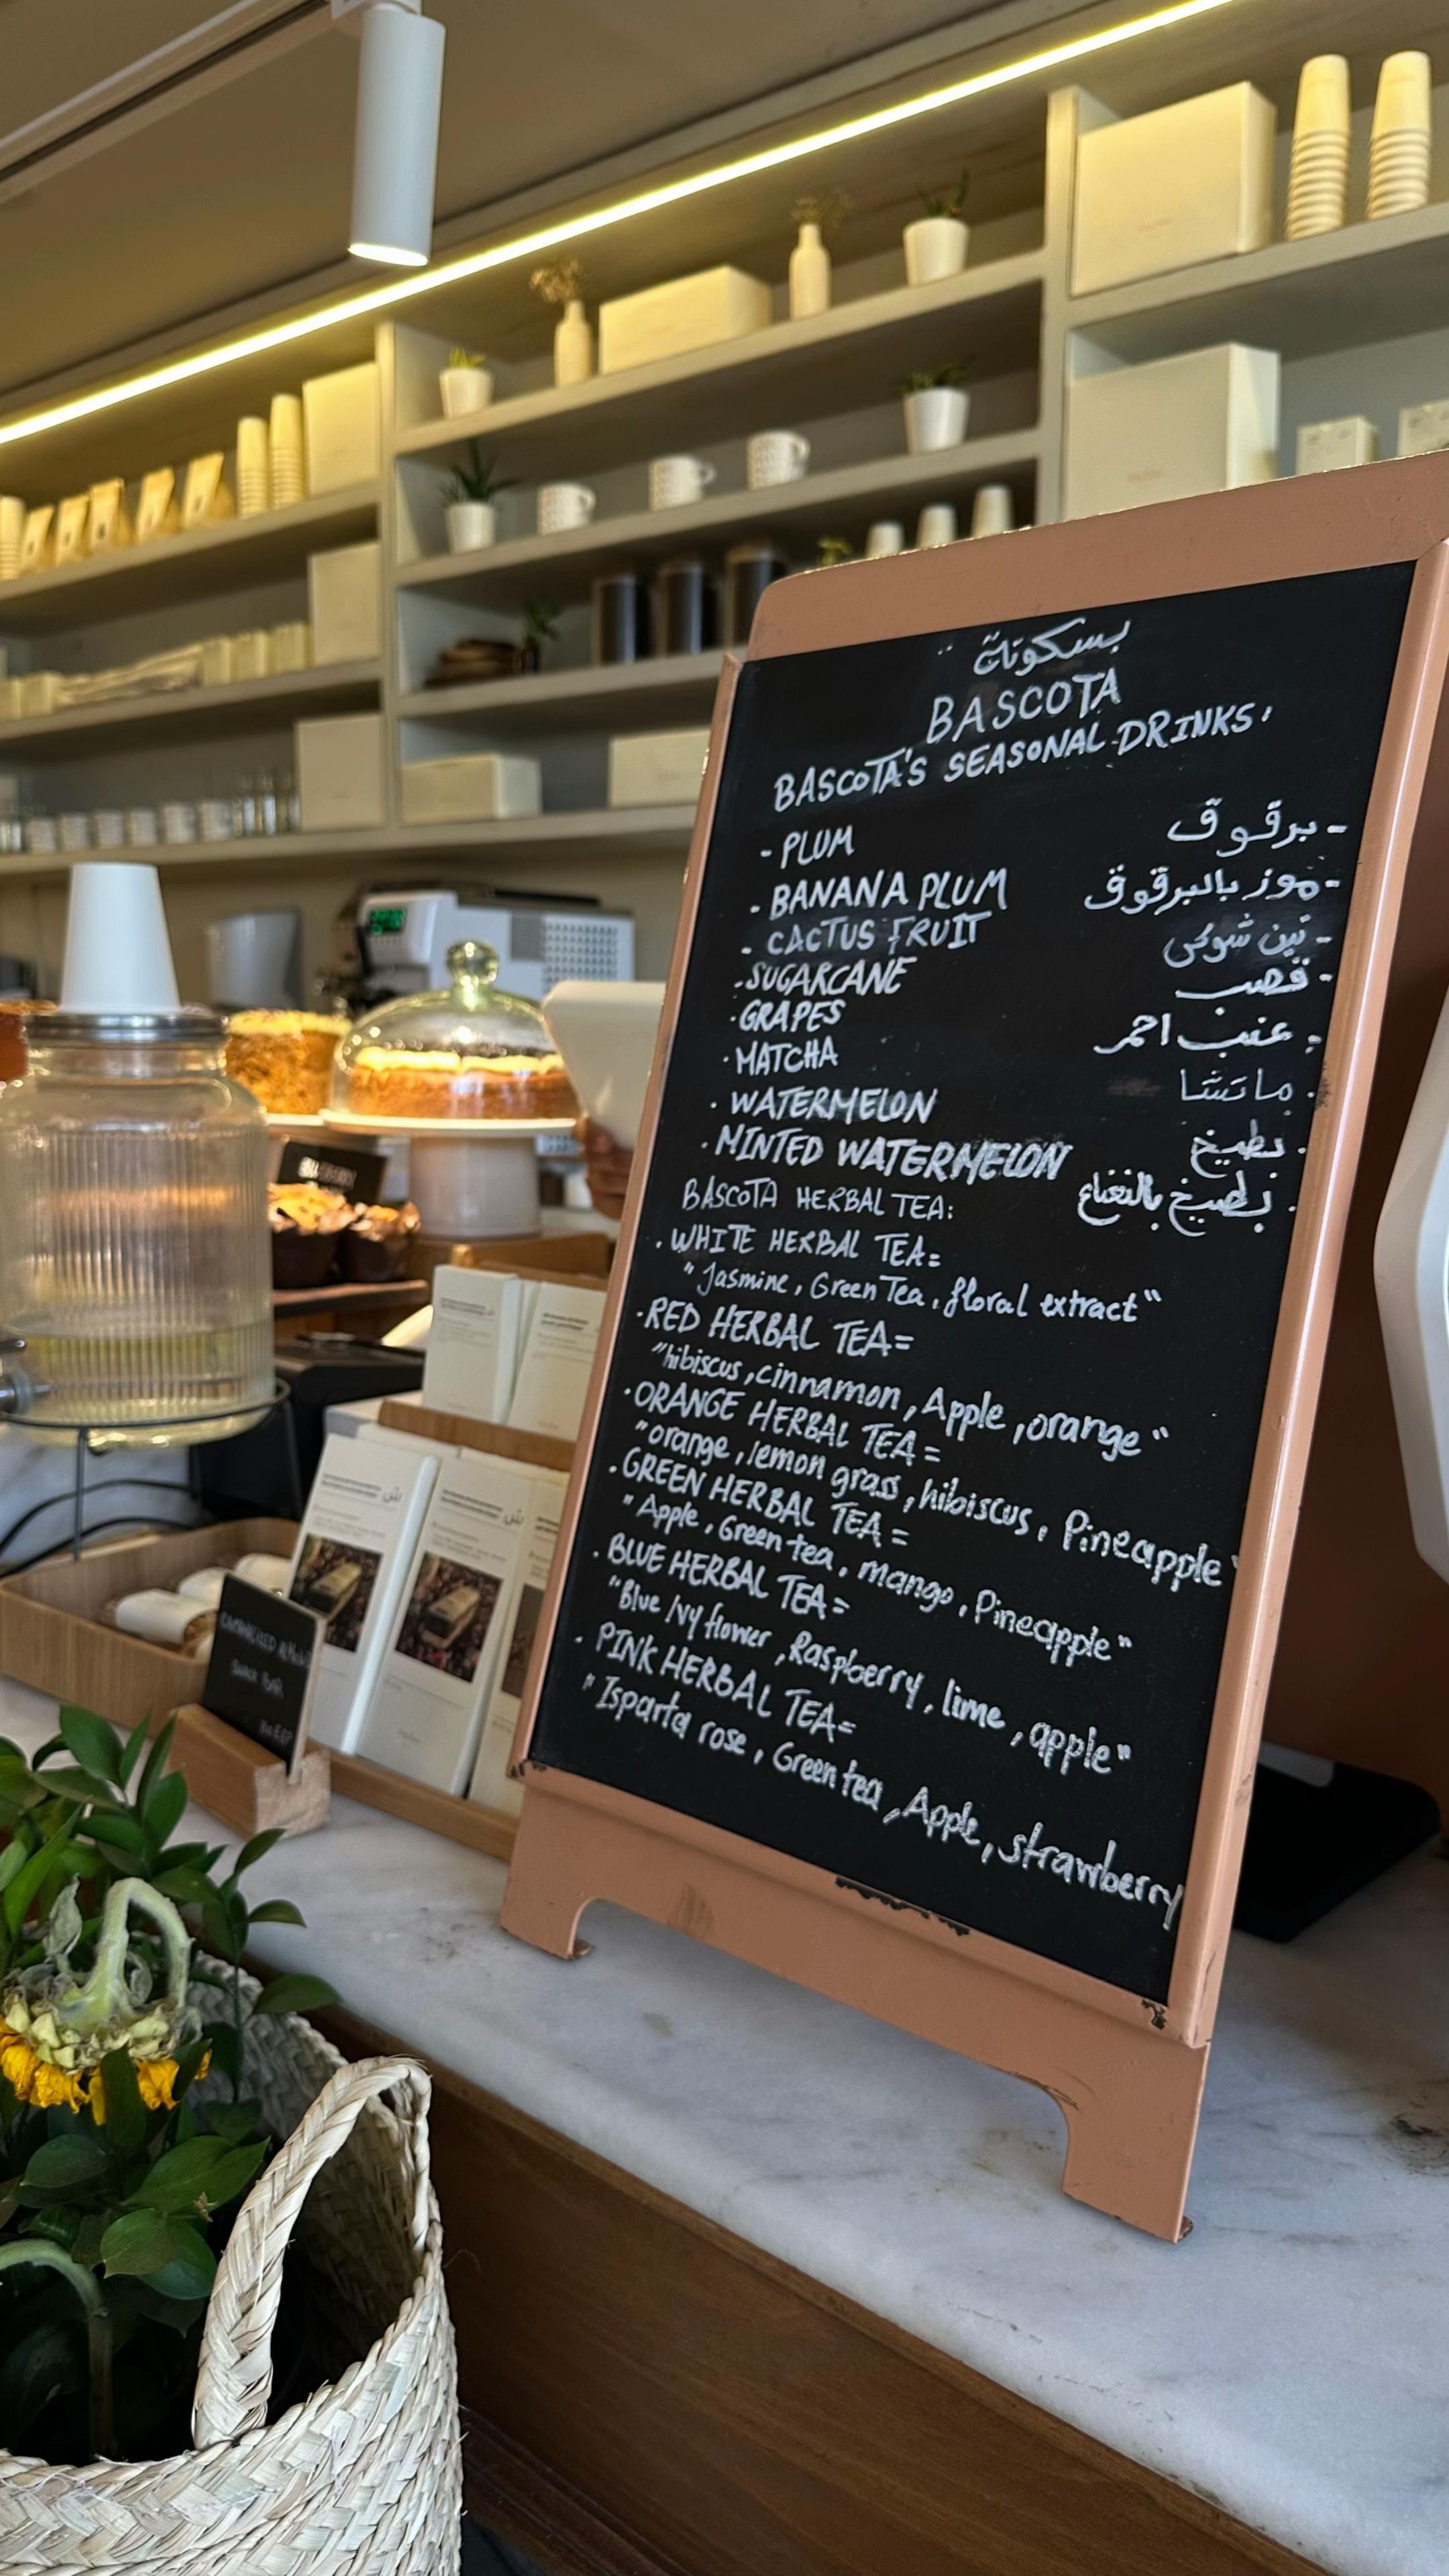 بسكوتة
BASCOTA
BASCOTA'S SEASONAL DRINKS:
- PLUM - برقوق
- BANANA PLUM - موز بالبرقوق
- CACTUS FRUIT - تين شوكى
- SUGARCANE - قصب
- GRAPES - عنب احمر
- MATCHA - ماتشا
- WATERMELON - بطيخ
- MINTED WATERMELON - بطيخ بالنعناع
BASCOTA HERBAL TEA:
- WHITE HERBAL TEA=
"Jasmine, Green Tea, floral extract"
- RED HERBAL TEA=
"hibiscus, cinnamon, Apple, orange"
- ORANGE HERBAL TEA=
"orange, lemon grass, hibiscus, Pineapple"
- GREEN HERBAL TEA=
"Apple, Green tea, mango, Pineapple"
- BLUE HERBAL TEA=
"Blue Ivy flower, Raspberry, lime, apple"
- PINK HERBAL TEA=
"Isparta rose, Green tea, Apple, strawberry